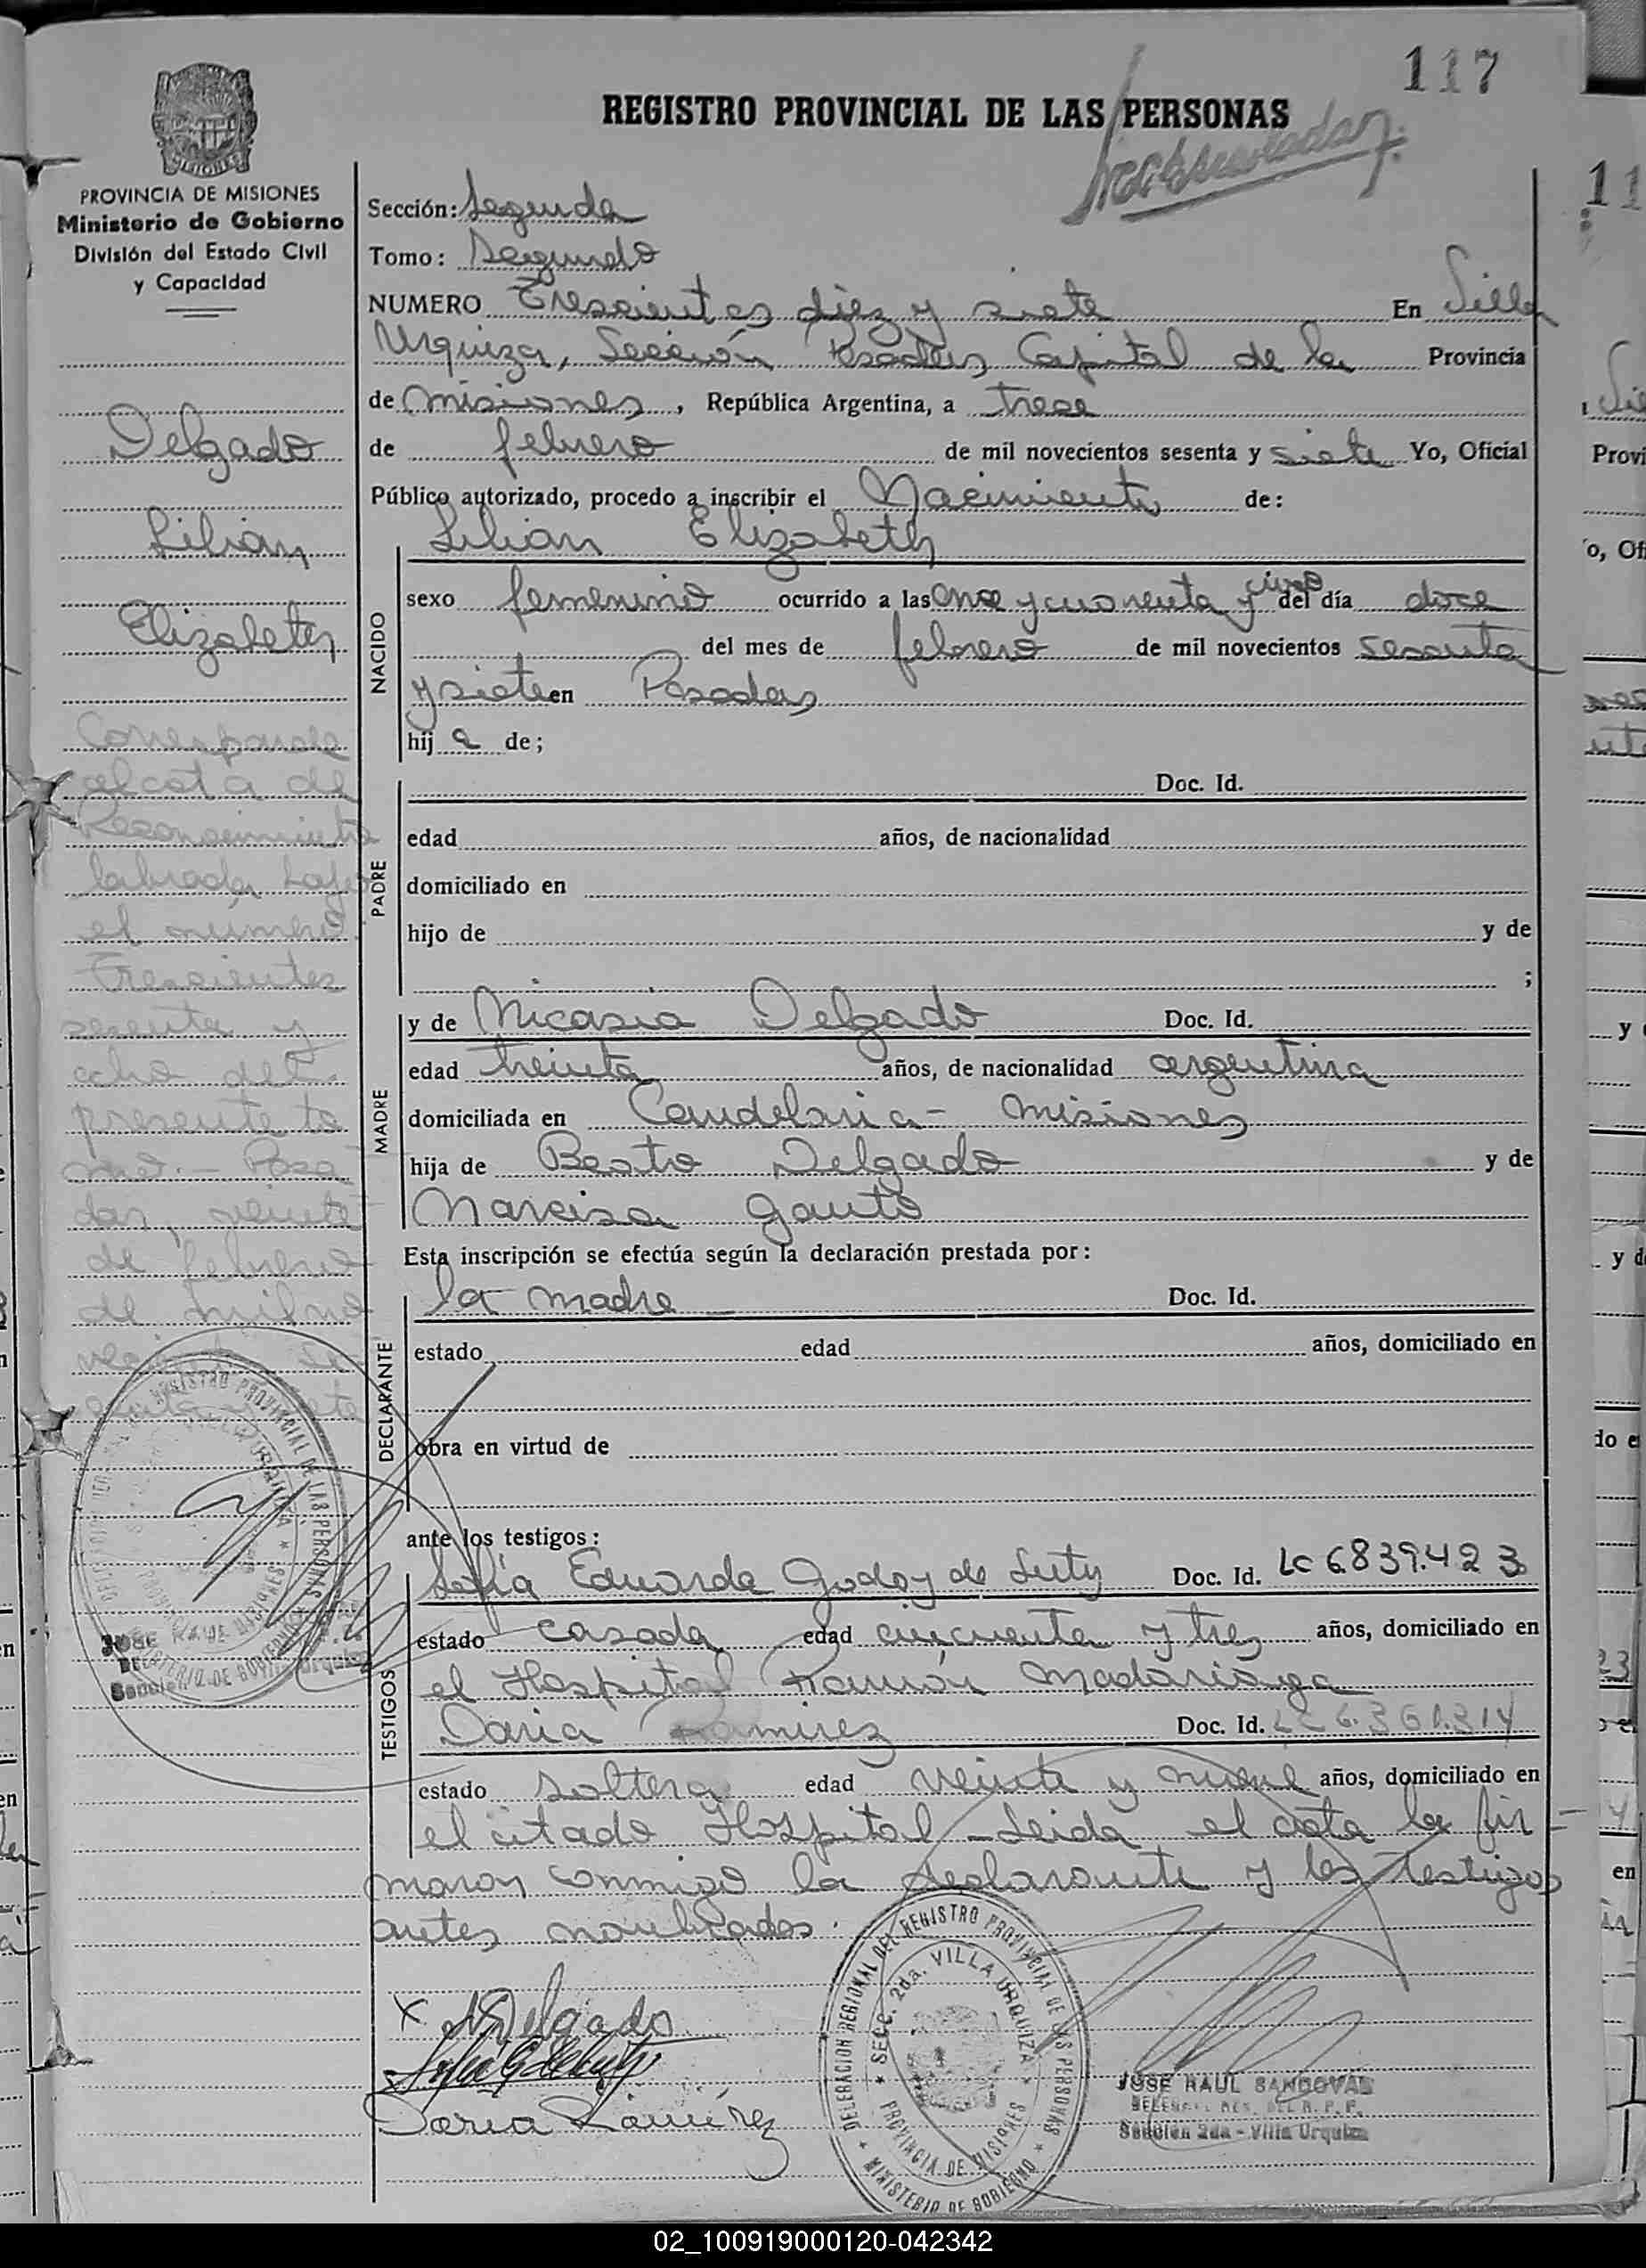 117
REGISTRO PROVINCIAL DE LAS PERSONAS
PROVINCIA DE MISIONES
Ministerio de Gobierno
División del Estado Civil
y Capacidad
Delgado
Lilian
Elizabeth
Corresponde
el acta de
Reconocimiento
labrada bajo
el número
Trescientos
sesenta y
ocho del
presente to
mo.- Posa
das, veinte
de febrero
de mil no
Sección: Segunda
Tomo: Segundo
NUMERO Trescientos diez y siete En Villa
Urquiza, Sección Posadas Capital de la Provincia
de Misiones, República Argentina, a trece
de febrero de mil novecientos sesenta y siete Yo, Oficial
Público autorizado, procedo a inscribir el Nacimiento de:
Lilian Elizabeth
NACIDO
sexo femenino ocurrido a las once y cuarenta y cinco del día doce
del mes de febrero de mil novecientos sesenta
y siete en Posadas
hija de;
PADRE
Doc. Id.
edad años, de nacionalidad
domiciliado en
hijo de y de
;
MADRE
y de Nicasia Delgado Doc. Id.
edad treinta años, de nacionalidad argentina
domiciliada en Candelaria - Misiones
hija de Beato Delgado y de
Narcisa Gauto
Esta inscripción se efectúa según la declaración prestada por:
DECLARANTE
la madre Doc. Id.
estado edad años, domiciliado en
obra en virtud de
ante los testigos:
TESTIGOS
Sofia Eduarda Godoy de Doc. Id. LC 6839.423
estado casada edad cincuenta y tres años, domiciliado en
el Hospital Ramón Madariaga
Daria Ramirez Doc. Id. LC 6.361.314
estado soltera edad veinte y nueve años, domiciliado en
el citado Hospital - Leida el acta la fir-
maron conmigo la declarante y los testigos
antes nombrados.
x N Delgado
Daria Ramirez
DELEGACION REGIONAL DEL REGISTRO PROVINCIAL DE LAS PERSONAS
SECC. 2da. VILLA URQUIZA
PROVINCIA DE MISIONES
MINISTERIO DE GOBIERNO
JOSE RAUL SANDOVAL
Sección 2da - Villa Urquiza
02_100919000120-042342